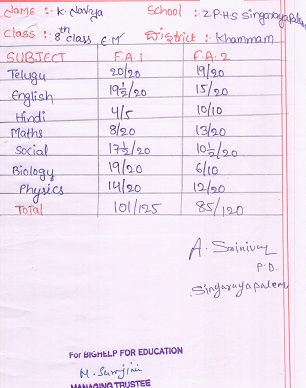 Name :- K. Navya School :- Z.P.H.S Singarayapalem
Class :- 8th class E.M District :- Khammam
SUBJECT F.A.1 F.A.2
Telugu 20/20 19/20
English 19½/20 15/20
Hindi 4/5 10/10
Maths 8/20 13/20
Social 17½/20 10½/20
Biology 19/20 6/10
Physics 14/20 12/20
Total 101/125 85/120
A. Srinivas
P.D.
Singarayapalem
For BIGHELP FOR EDUCATION
MANAGING TRUSTEE